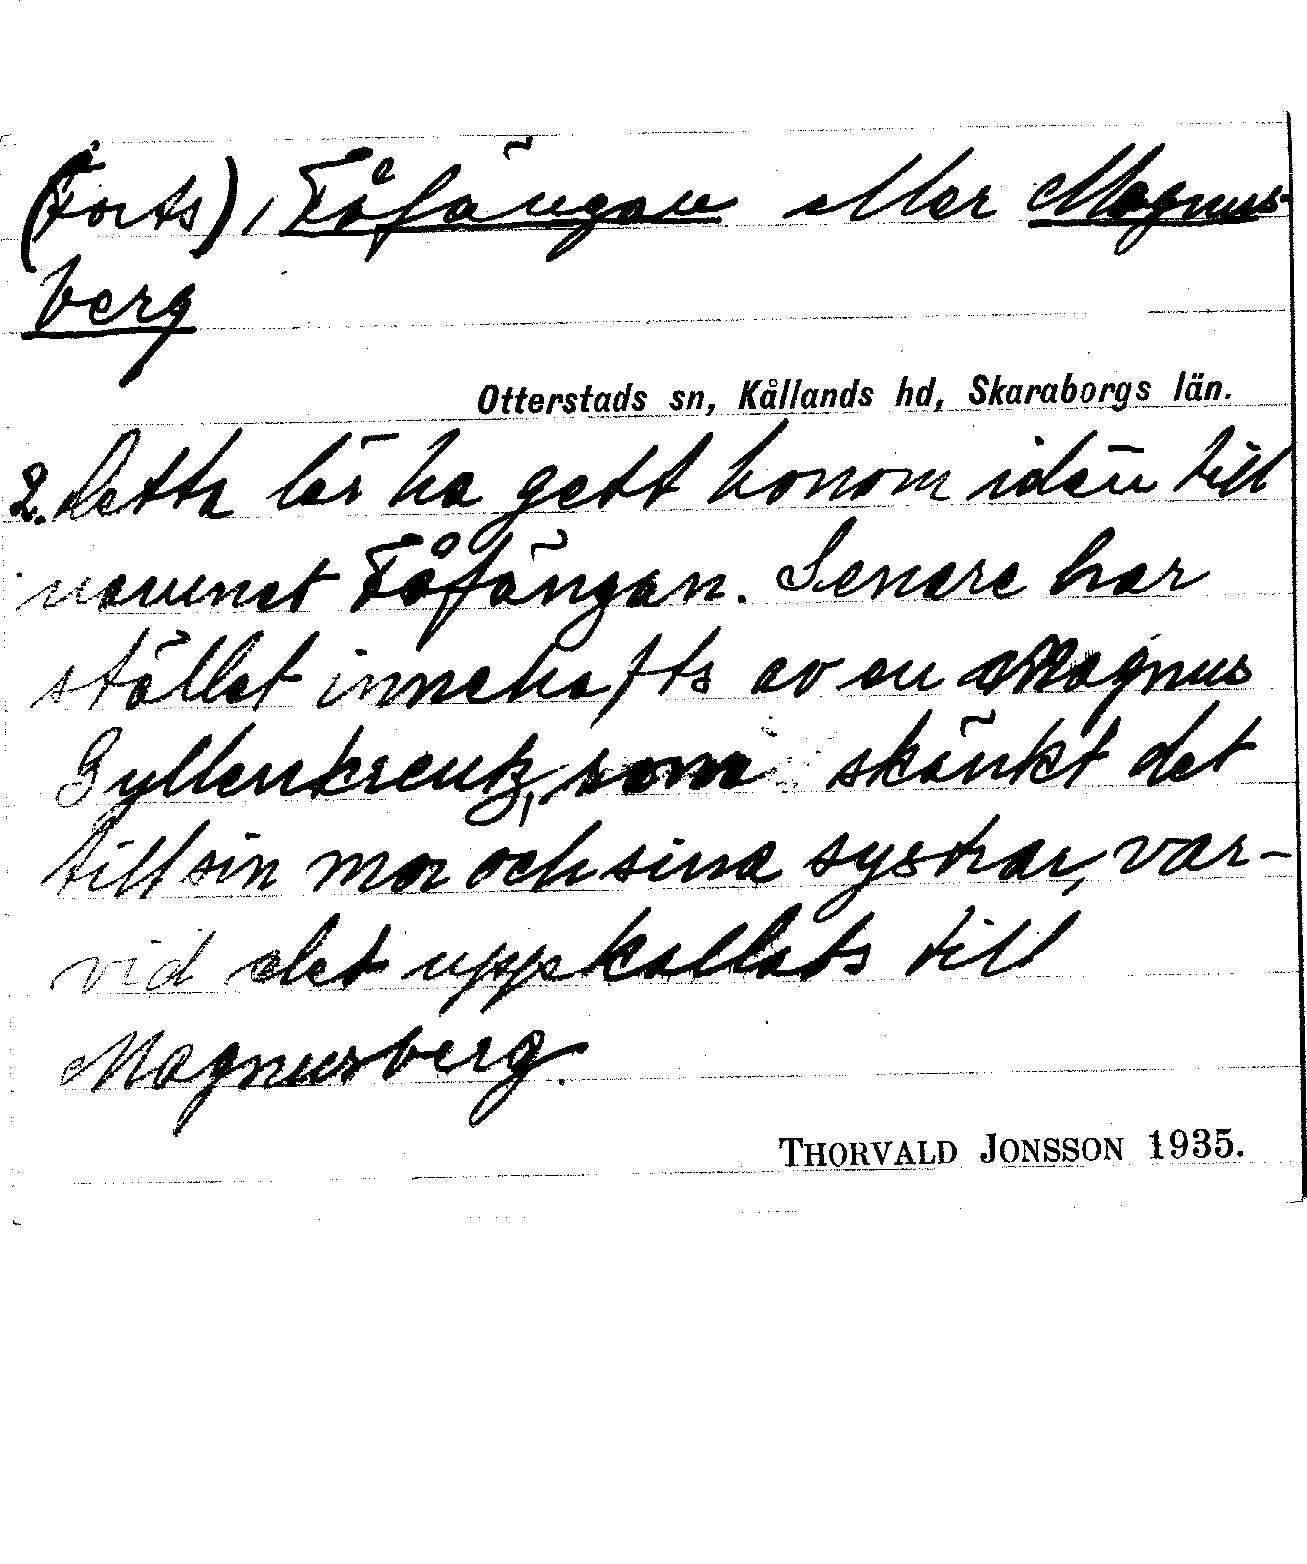 (Forts), Fåfängan eller Magnus-
berg
Otterstads sn, Kållands hd, Skaraborgs län.
2. Detta lär ha gett honom idén till
namnet Fåfängan. Senare har
stället innehafts av en Magnus
Gyllenkreutz, som skänkt det
till sin mor och sina systrar, var-
vid det uppkallats till
Magnusberg.
THORVALD JONSSON 1935.